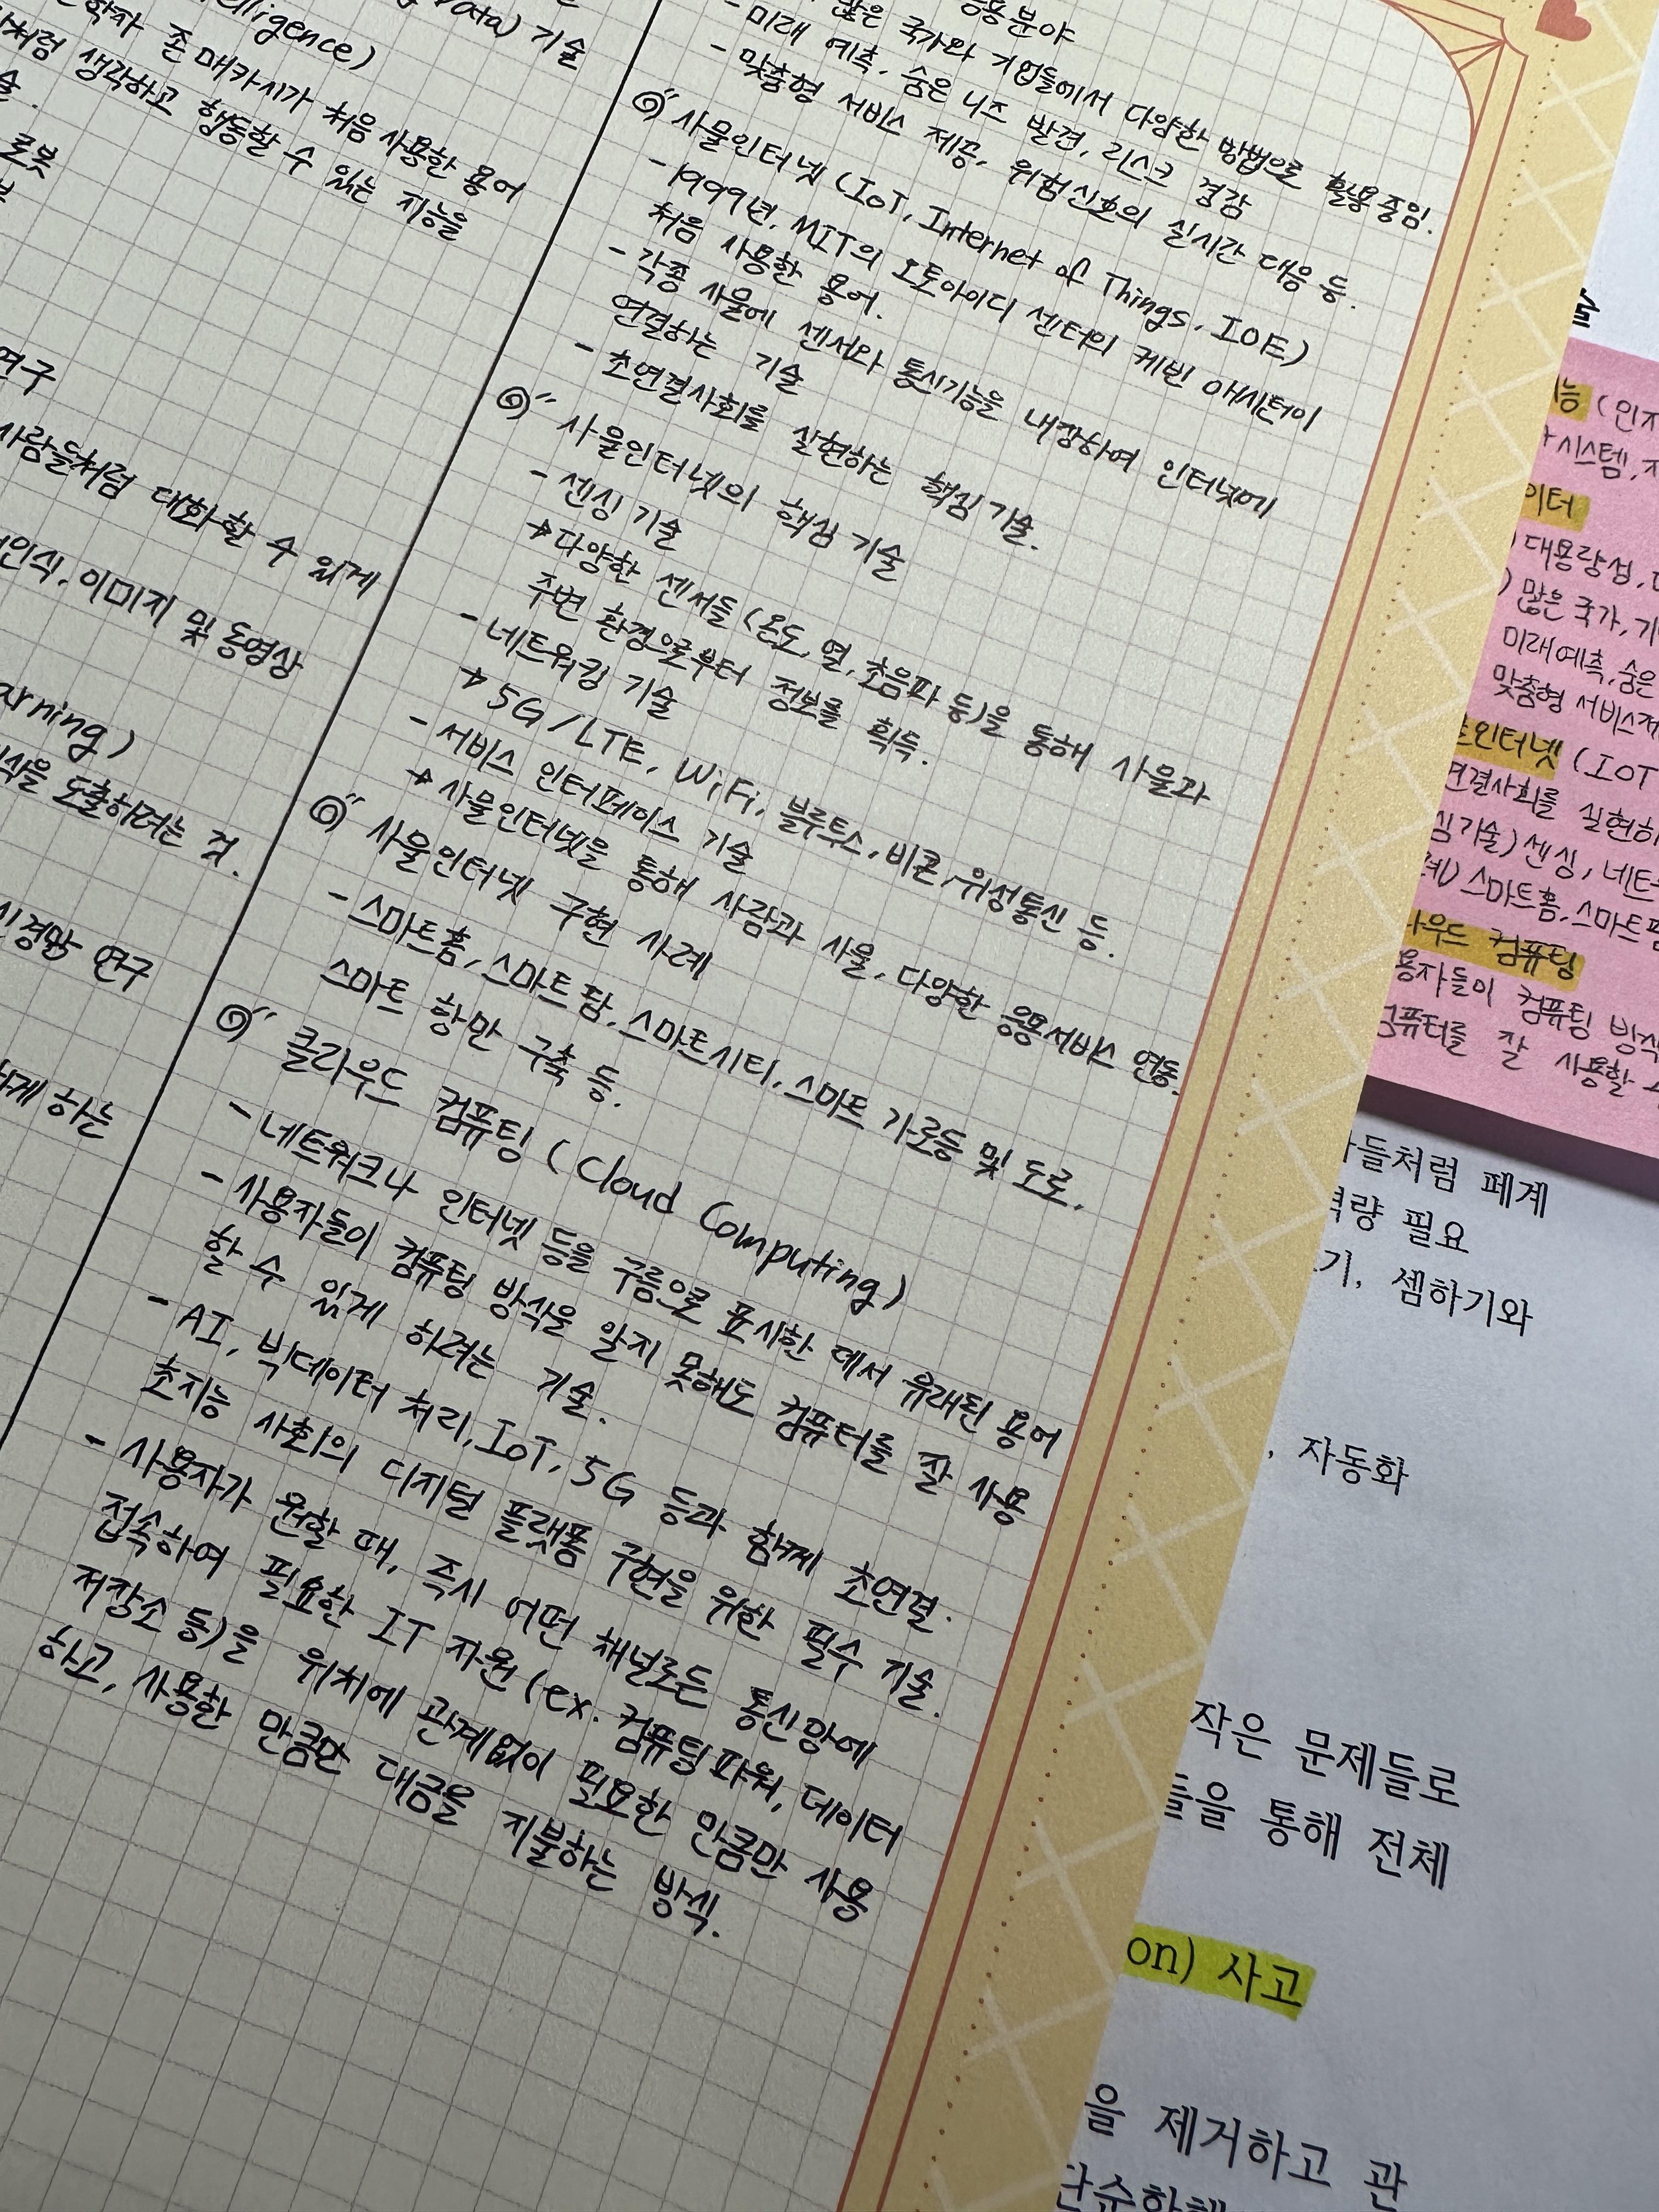 Data) 기술
elligence)
학자 존 매카시가 처음 사용한 용어
처럼 생각하고 행동할 수 있는 지능을
술.
로봇
연구
사람들처럼 대화할 수 있게
인식, 이미지 및 동영상
arning)
식을 도출하려는 것.
신경망 연구
하게 하는
응용분야
많은 국가와 기업들에서 다양한 방법으로 활용중임.
- 미래 예측, 숨은 니즈 발견, 리스크 경감
- 맞춤형 서비스 제공, 위험신호의 실시간 대응 등.
사물인터넷 (IoT, Internet of Things, IOE)
- 1999년, MIT의 오토아이디 센터의 케빈 애시턴이
처음 사용한 용어.
- 각종 사물에 센서와 통신기능을 내장하여 인터넷에
연결하는 기술
- 초연결사회를 실현하는 핵심 기술.
사물인터넷의 핵심 기술
- 센싱 기술
→ 다양한 센서들 (온도, 열, 초음파 등)을 통해 사물과
주변 환경으로부터 정보를 획득.
- 네트워킹 기술
→ 5G / LTE, WiFi, 블루투스, 비콘, 위성통신 등.
- 서비스 인터페이스 기술
→ 사물인터넷을 통해 사람과 사물, 다양한 응용서비스 연동.
사물인터넷 구현 사례
- 스마트홈, 스마트팜, 스마트시티, 스마트 가로등 및 도로,
스마트 항만 구축 등.
클라우드 컴퓨팅 (Cloud Computing)
- 네트워크나 인터넷 등을 구름으로 표시한 데서 유래된 용어
- 사용자들이 컴퓨팅 방식을 알지 못해도 컴퓨터를 잘 사용
할 수 있게 하려는 기술.
- AI, 빅데이터 처리, IoT, 5G 등과 함께 초연결·
초지능 사회의 디지털 플랫폼 구현을 위한 필수 기술.
- 사용자가 원할 때, 즉시 어떤 채널로든 통신망에
접속하여 필요한 IT 자원 (ex. 컴퓨팅 파워, 데이터
저장소 등)을 위치에 관계없이 필요한 만큼만 사용
하고, 사용한 만큼만 대금을 지불하는 방식.
능 (인지
시스템, 지
이터
대용량성, 
) 많은 국가, 기
미래예측, 숨은
맞춤형 서비스제
인터넷 (IOT
연결사회를 실현하
심기술) 센싱, 네트
례) 스마트홈, 스마트팜
라우드 컴퓨팅
용자들이 컴퓨팅 방식
컴퓨터를 잘 사용할 수
자들처럼 페계
역량 필요
기, 셈하기와
, 자동화
작은 문제들로
들을 통해 전체
on) 사고
을 제거하고 관
단순화해